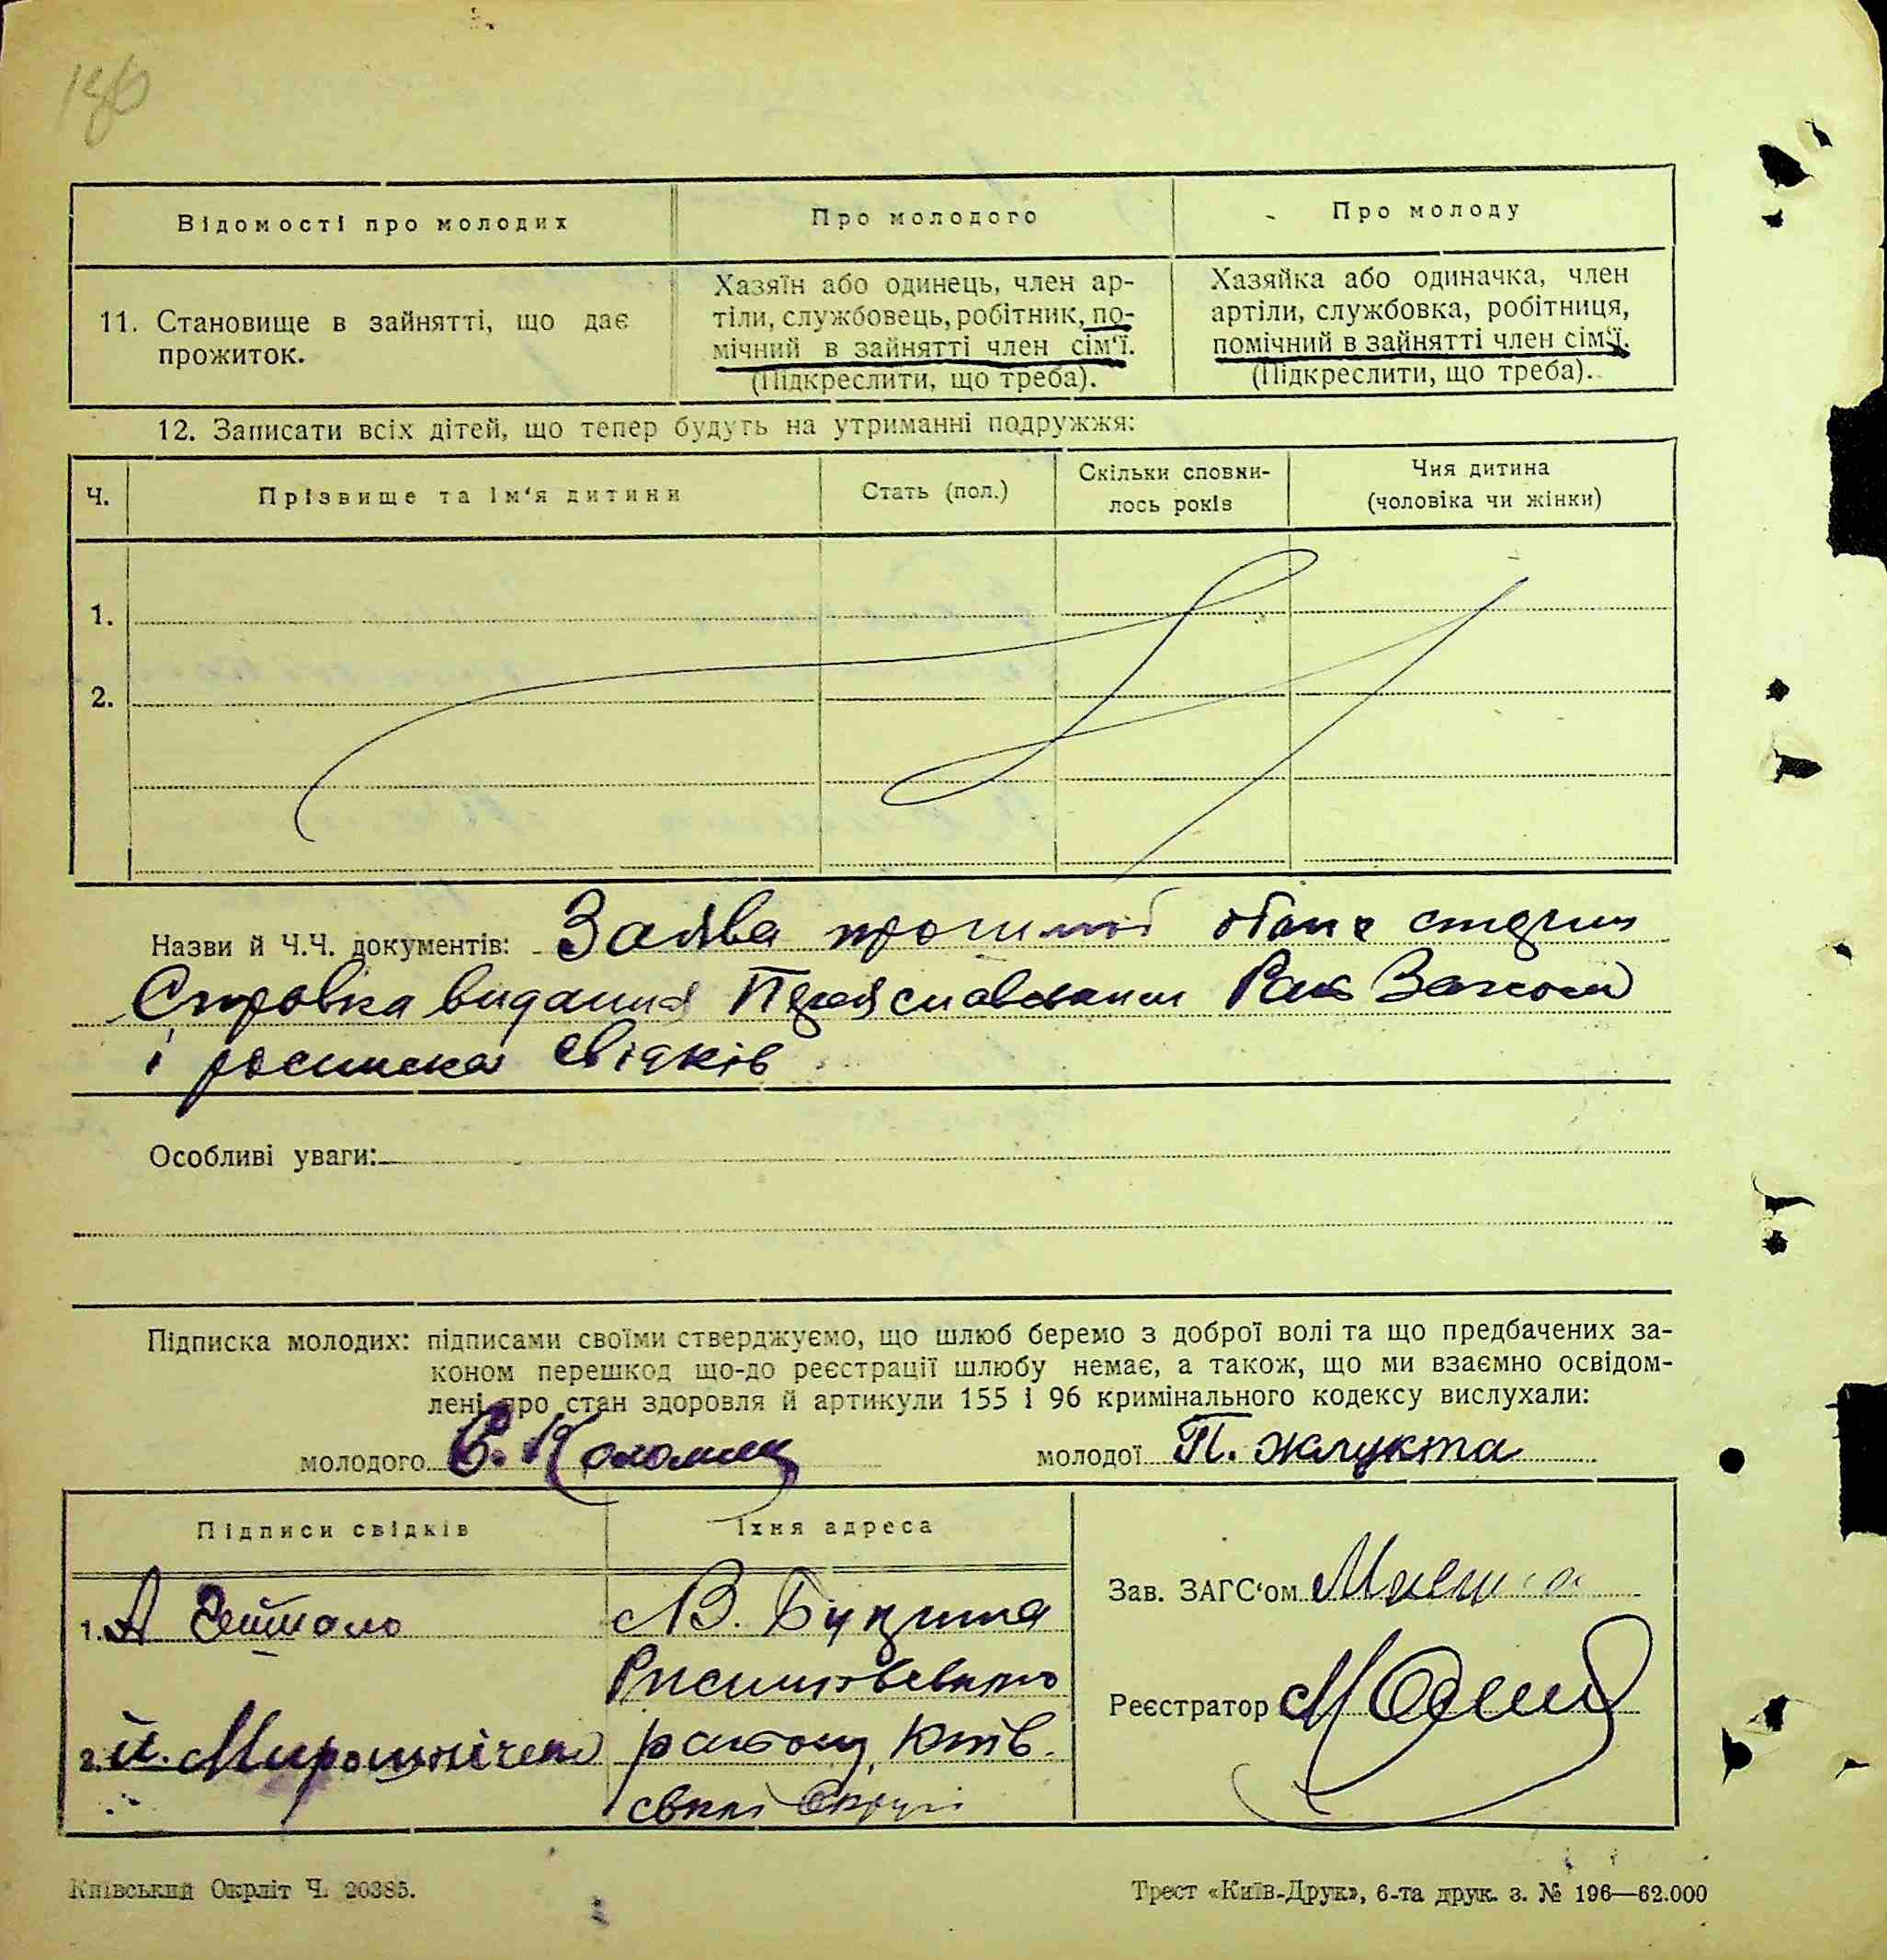 186
Відомості про молодих
Про молодого
Про молоду
11. Становище в зайнятті, що дає прожиток.
Хазяїн або одинець, член ар-
тіли, службовець, робітник, по-
мічний в зайнятті член сім'ї.
(Підкреслити, що треба).
Хазяйка або одиначка, член
артіли, службовка, робітниця,
помічний в зайнятті член сім'ї.
(Підкреслити, що треба).
12. Записати всіх дітей, що тепер будуть на утриманні подружжя:
Ч.
Прізвище та ім'я дитини
Стать (пол.)
Скільки сповни-
лось років
Чия дитина
(чоловіка чи жінки)
1.
2.
Назви й Ч.Ч. документів: Заява
Справка видання
і росписка свідків
Особливі уваги:
Підписка молодих: підписами своїми стверджуємо, що шлюб беремо з доброї волі та що предбачених за-
коном перешкод що-до реєстрації шлюбу немає, а також, що ми взаємно освідом-
лені про стан здоровля й артикули 155 і 96 кримінального кодексу вислухали:
молодого С. Коломиец молодої П. Жлукта
Підписи свідків
Їхня адреса
1. А
2. Мирошніченко
В.
району, Київ-
Зав. ЗАГС'ом
Реєстратор
Київський Окрліт Ч. 20385.
Трест «Київ-Друк», 6-та друк. з. № 196—62.000